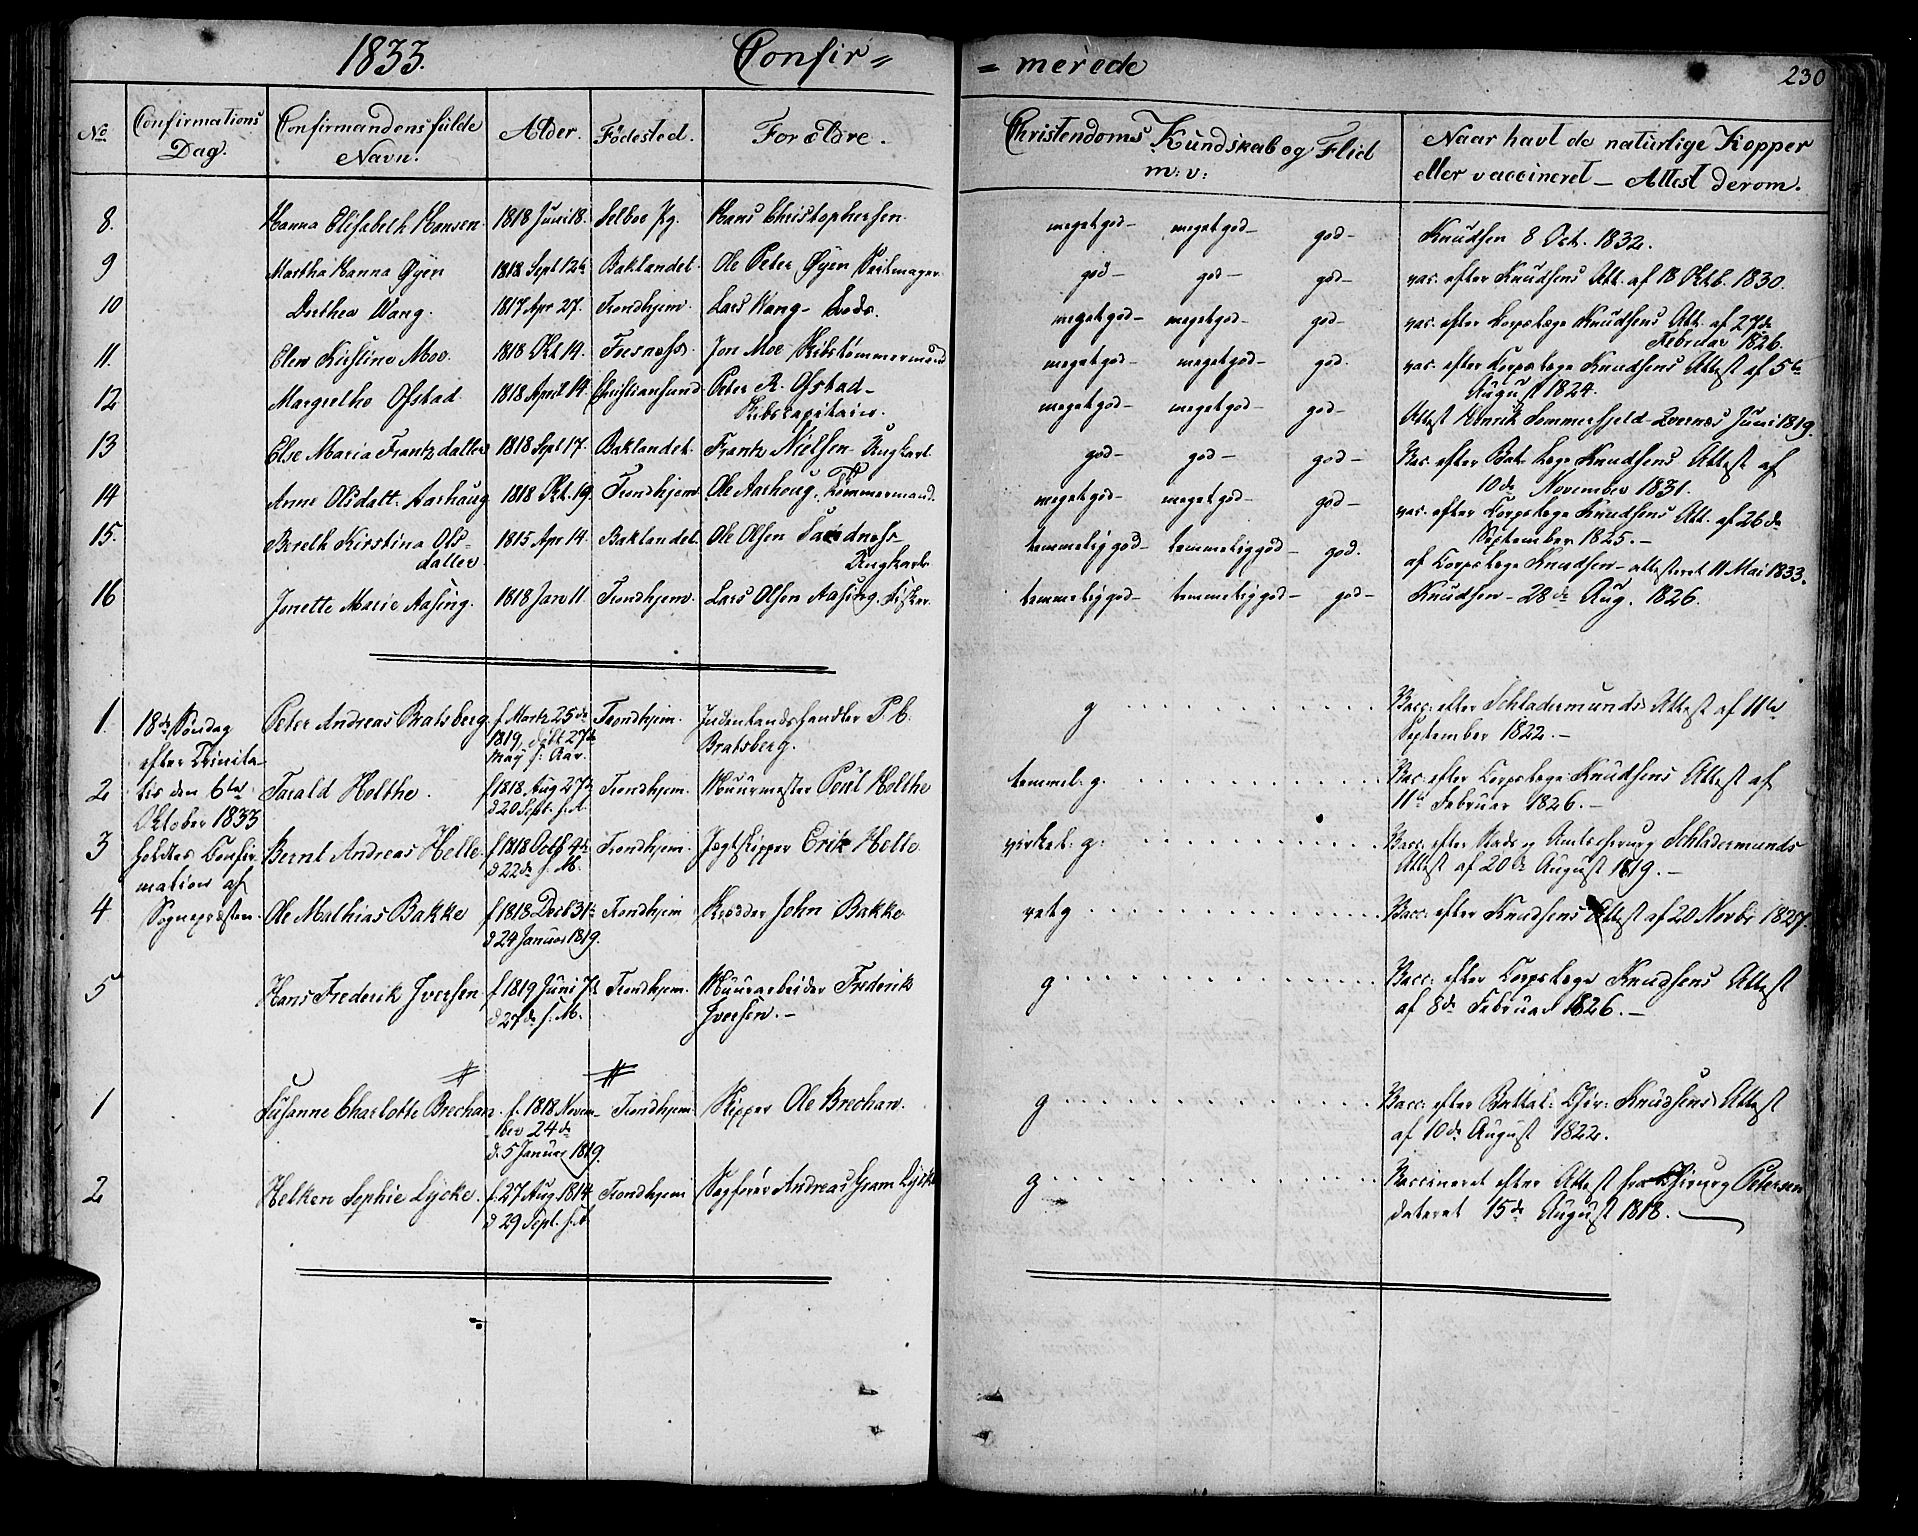 1833. Confir=
= merede 230
No Confirmations Dag. Confirmandens fulde Navn. Alder. Fødested. Forældre. Christendoms Kundskab og Flid m: v: Naar havt de naturlige Kopper eller vaccineret – Attest derom.
8. Hanna Elisabeth Hansen 1818 Juni 18. Selboe Pg. Hans Christophersen. meget god – meget god – god – Knudsen 8 Oct. 1832.
9 Martha Hanna Øyen 1818 Sept 12te Baklandet. Ole Peter Øyen god – god – god – vac. efter Knudsens Att. af 18 Oktb. 1830.
10 Dorthea Wang. 1817 Apr 27. Trondhjem. Lars Wang – meget god – meget god – god – vac. efter Corpslæge Knudsens Att. af 27de
Februar 1826.
11. Elen Kristine Moe. 1818 Okt 14. Jon Moe – Skibstømmermand meget god – meget god – god. vac. efter Corpslæge Knudsens Attest af 5te
August 1824.
12 Margrethe Ofstad 1818 April 14. Christiansund Peter R. Ofstad –
Skibscapitain. meget god – meget god – god – Attest Henrik Sommerfjeld – Juni 1819.
13 Else Maria Frantzdatter 1818 Sept 17. Baklandet. Frantz Nielsen god – god – god – Vac. efter Bat. Læge Knudsens Attest af
10de November 1831.
14 Anne Olsdatt. Aarhaug 1818 Okt. 19. Trondhjem Ole Aarhaug, Tømmermand. meget god – meget god – god – vac. efter Corpslæge Knudsens Att. af 26de
September 1825. –
15. Bereth Kirstina Ols-
datter 1815 Apr 14. Baklandet. Ole Olsen Sandness – temmelig god – temmelig god – god. af Corpslæge Knudsen – attesteret 11 Mai 1833.
16 Jonette Marie Aasing. 1818 Jan 11. Trondhjem. Lars Olsen Aasing, Fisker. temmelig god – temmelig god – god – Knudsen – 28de Aug. 1826.
1. 18de Søndag Peter Andreas Bratsberg f. Martz 25de Trondhjem. P. C. g Vacc: efter Schladermunds Attest af 11te
efter Trinita- 1819, døbt 27de Bratsberg. September 1822. –
May s: Aar.
2 tis den 6te Tarald Holthe. f 1818 Aug 27de Trondhjem. Muurmester Poul Holthe temmel: g. Vac. efter Corpslæge Knudsens Attest af
Oktober 1833 d 20 Sept. s. A. 11te Februar 1826. –
3 holdtes Confir Bernt Andreas Helle f 1818 Octb 4de Trondhjem. Jægtskipper Erik Helle virkel: g: Vacc: efter Stads og Amtschirurg Schladermunds
mation af d 22de s. M. Attest af 20de August 1819. –
4 Sognepræsten. Ole Mathias Bakke f 1818 Decb 31te Trondhjem John Bakke ret g Vacc: efter Knudsens Attest af 20 Novbr 1827.
d 24 Januar 1819.
5 Hans Frederik Iversen f 1819 Juni 7de Trondhjem. Muurarbeider Frederik g Vacc: efter Corpslæge Knudsens Attest
d 27de s. M. Iversen. – af 8de Februar 1826. –
1 Susanne Charlotte Brechan. f. 1818 Novem- Trondhjem. Skipper Ole Brechan. g Vacc: efter Battal: Chir: Knudsens Attest
ber 24de af 10de August 1822.
d. 5 Januar 1819.
2 Helken Sophie Lycke. f. 27 Aug. 1814 Trondhjem Sagfører Andreas Gram Lycke g Vaccineret efter Attest fra Chirurg Petersen
d 29 Sept. s. A. dateret 15de August 1818.